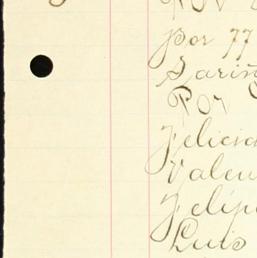 Por
por 77
Sariñ
Por
Felicia
Valen
Felip
Luis